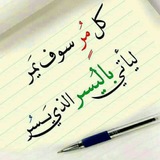 كل مُرٍ سوف يَمر
ليأتي باليُسر الذي يسُر